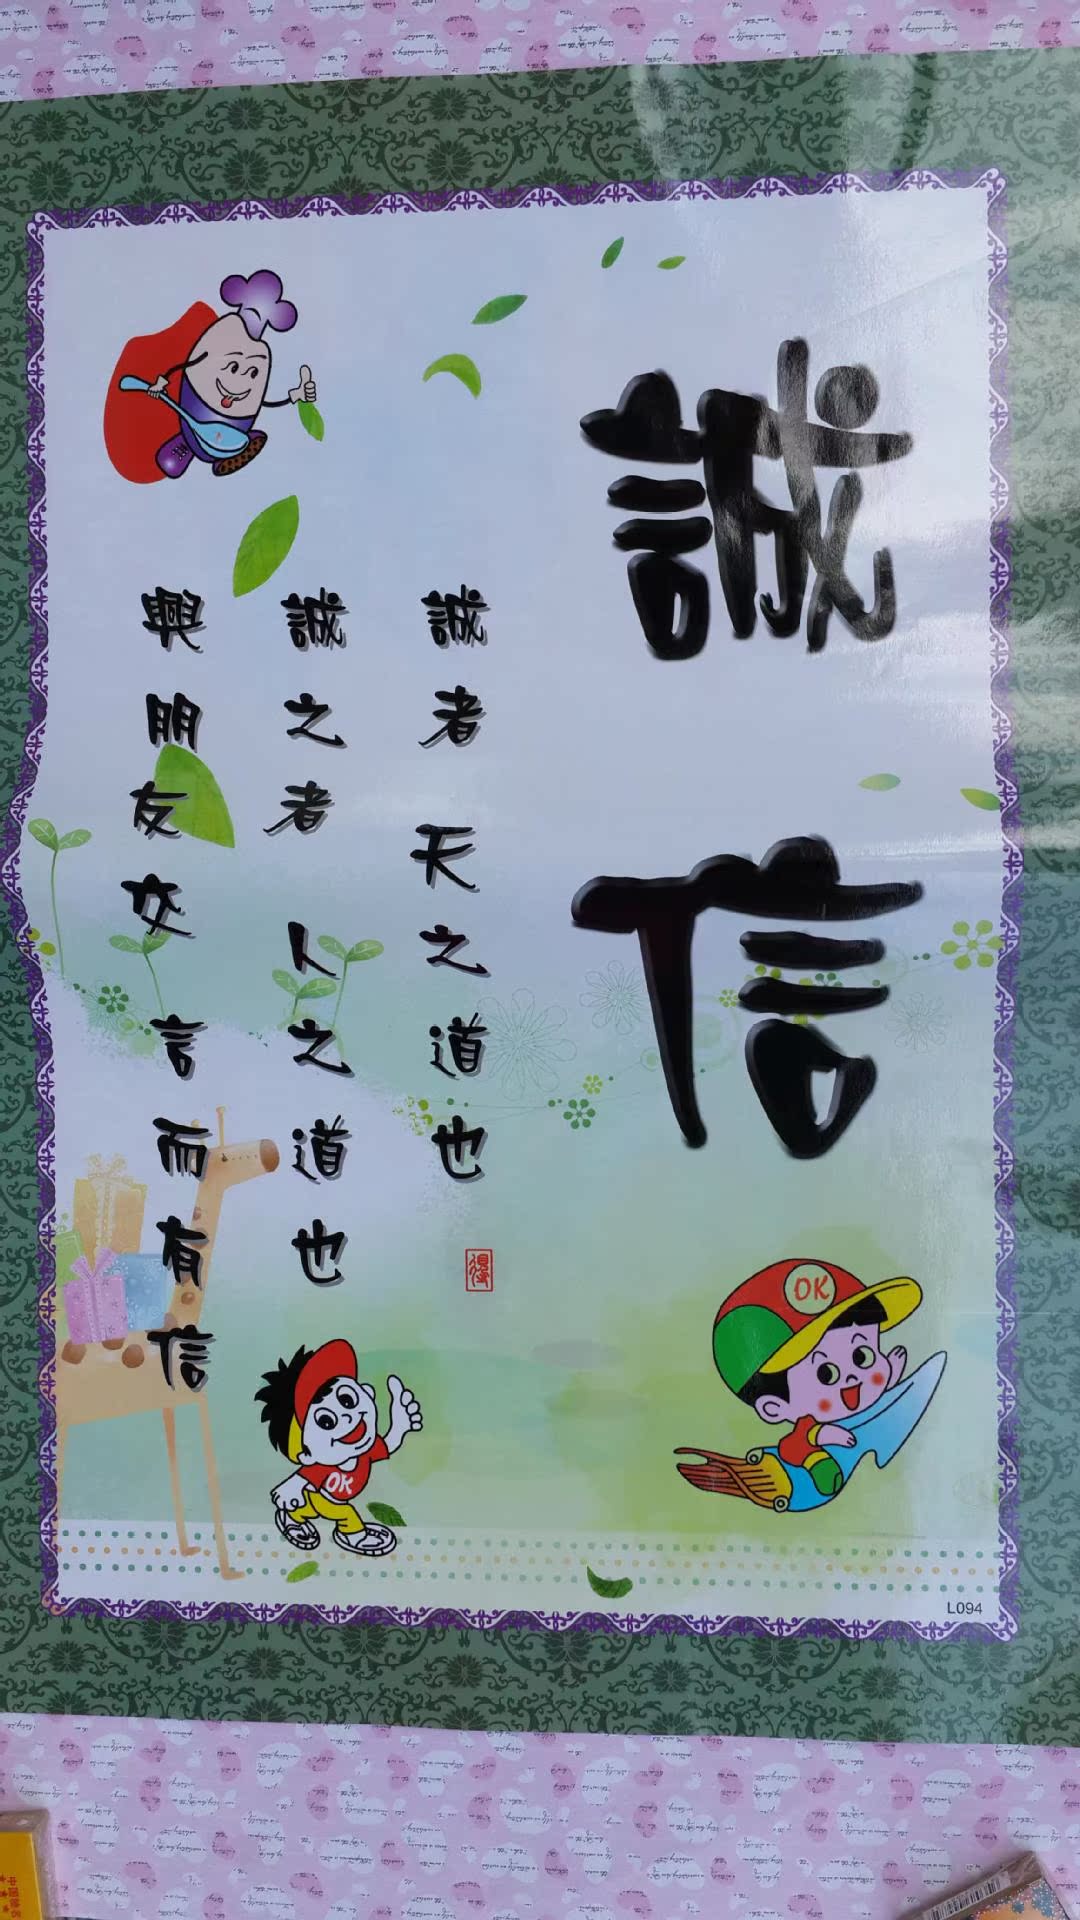 誠信
誠者 天之道也
誠之者 人之道也
興朋友交 言而有信
OK
OK
L094